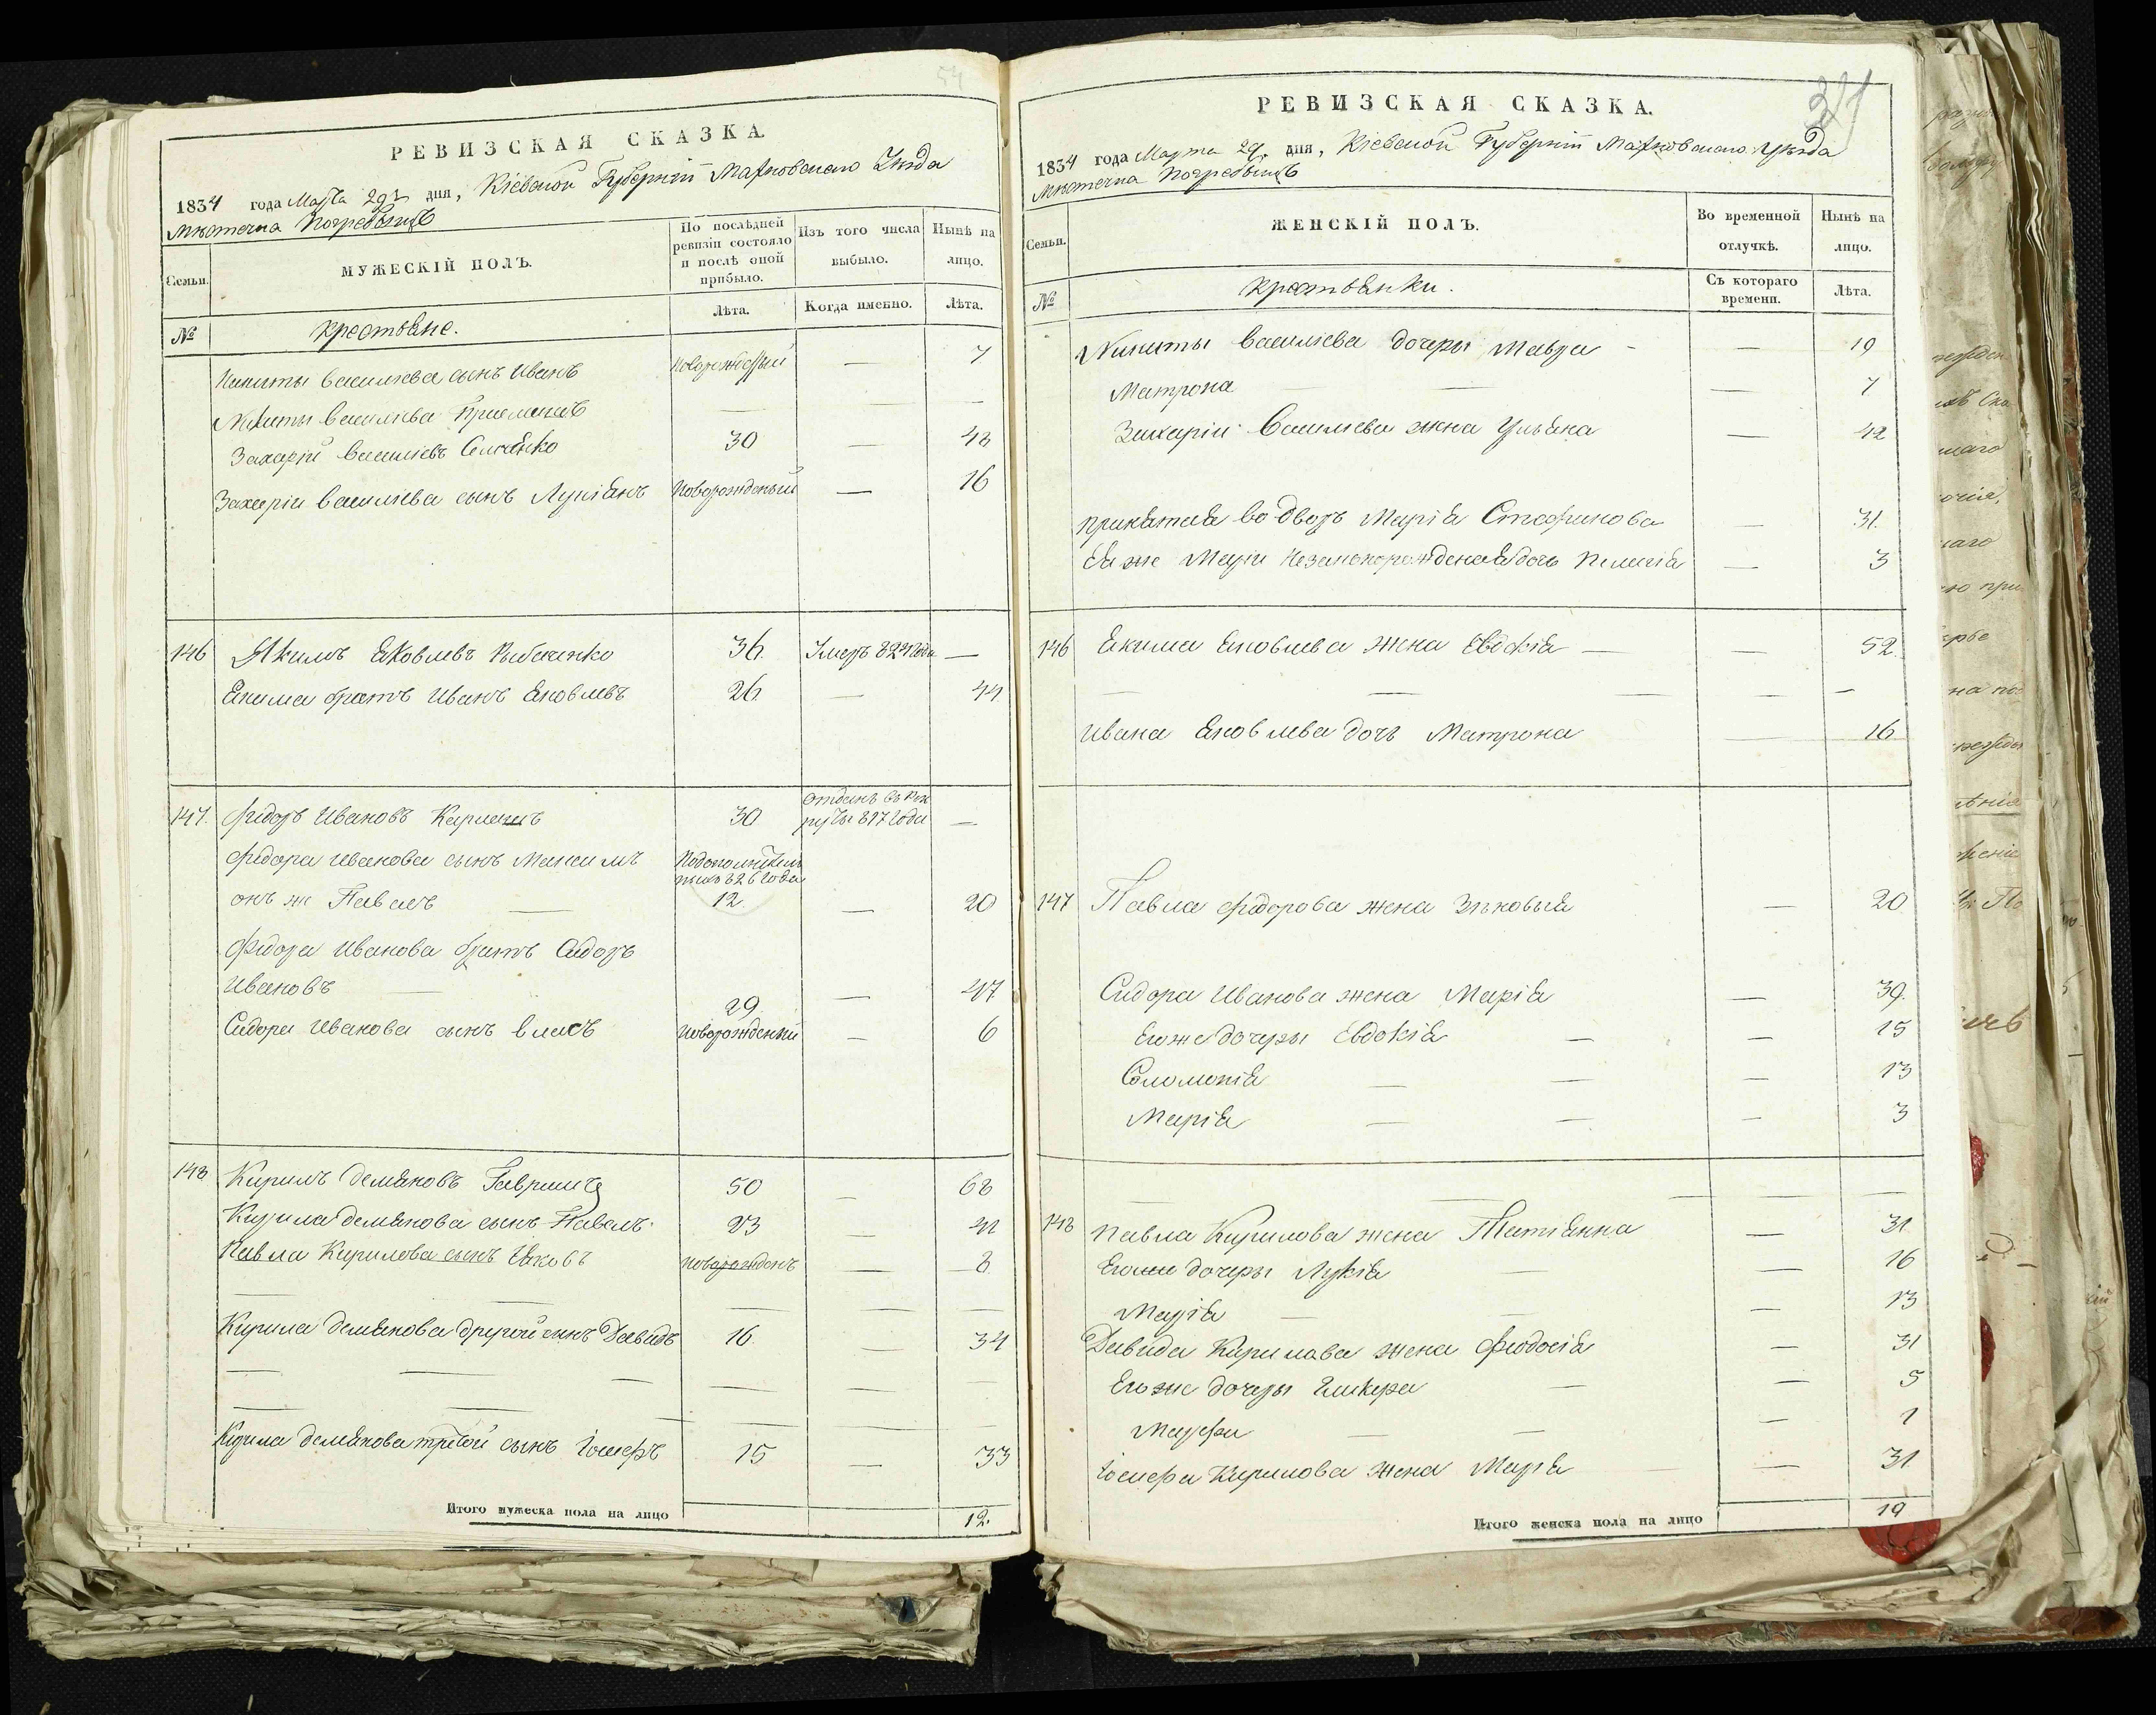 54
РЕВИЗСКАЯ СКАЗКА.
1834 года Марта 29 дня, Кіевской Губерніи Махновскаго Уѣзда
Мѣстечка Погребыщъ
Семьи.
МУЖЕСКІЙ ПОЛЪ.
По послѣдней ревизіи состояло и послѣ оной прибыло.
Изъ того числа выбыло.
Нынѣ на лицо.
№
крестьяне.
Лѣта.
Когда именно.
Лѣта.
Никиты Василіева сынъ Иванъ Новорожденный — 7
Никиты Василіева — — —
Захарій Василіевъ 30 — 48
Захаріи Василіева сынъ Лукіянъ Новорожденый — 16
146 Якимъ Яковлевъ 36. Умеръ 824 года —
Якима братъ Иванъ Яковлевъ 26. — 44
147. Фидоръ Ивановъ 30 отданъ въ рекруты 817 года —
Фидора Иванова сынъ Максимъ
826 года
онъ же Павелъ — 12. — 20
Фидора Иванова братъ Сидоръ
Ивановъ — 29 — 47
Сидора Иванова сынъ Власъ Новорожденый — 6
148 Кирилъ Демяновъ 50 — 68
Кирила Демянова сынъ Павелъ 23 — 41
Павла Кирилова сынъ Яковъ Новорожденъ — 8
Кирила Демянова другой сынъ Давидъ 16. — 34
Кирила Демянова третій сынъ Іосифъ 15 — 33
Итого мужеска пола на лицо 12.
РЕВИЗСКАЯ СКАЗКА.
1834 года Марта 29. дня, Кіевской Губерніи Махновскаго Уѣзда
Мѣстечка Погребыщъ
Семьи.
ЖЕНСКІЙ ПОЛЪ.
Во временной отлучкѣ.
Нынѣ на лицо.
№
крестьянки.
Съ котораго времени.
Лѣта.
Никиты Василіева дочеры Мавра — — 19
Матрона — — 7
Захаріи Василіева жена Ульяна — 42
принятая во дворъ Марія — 31.
Ея же Маріи незаконорожденая дочь — 3
146 Якима Яковлева жена Евдокія — — 52.
— — — — —
Ивана Яковлева дочь Матрона — 16.
147 Павла Фидорова жена — 20.
Сидора Иванова жена Марія — 39.
Егоже дочеры Евдокія — — 15
Соломонія — — — 13
Марія — — — 3
148 Павла Кирилова жена Татіянна — 31
Егоже дочеры Лукія — — 16
Марія — — — 13
Давида Кирилава жена Феодосія — 31
Егоже дочеры Гликера — — 5
Марфа — — — 1
Іосифа Кирилова жена Марія — 31
Итого женска пола на лицо 19